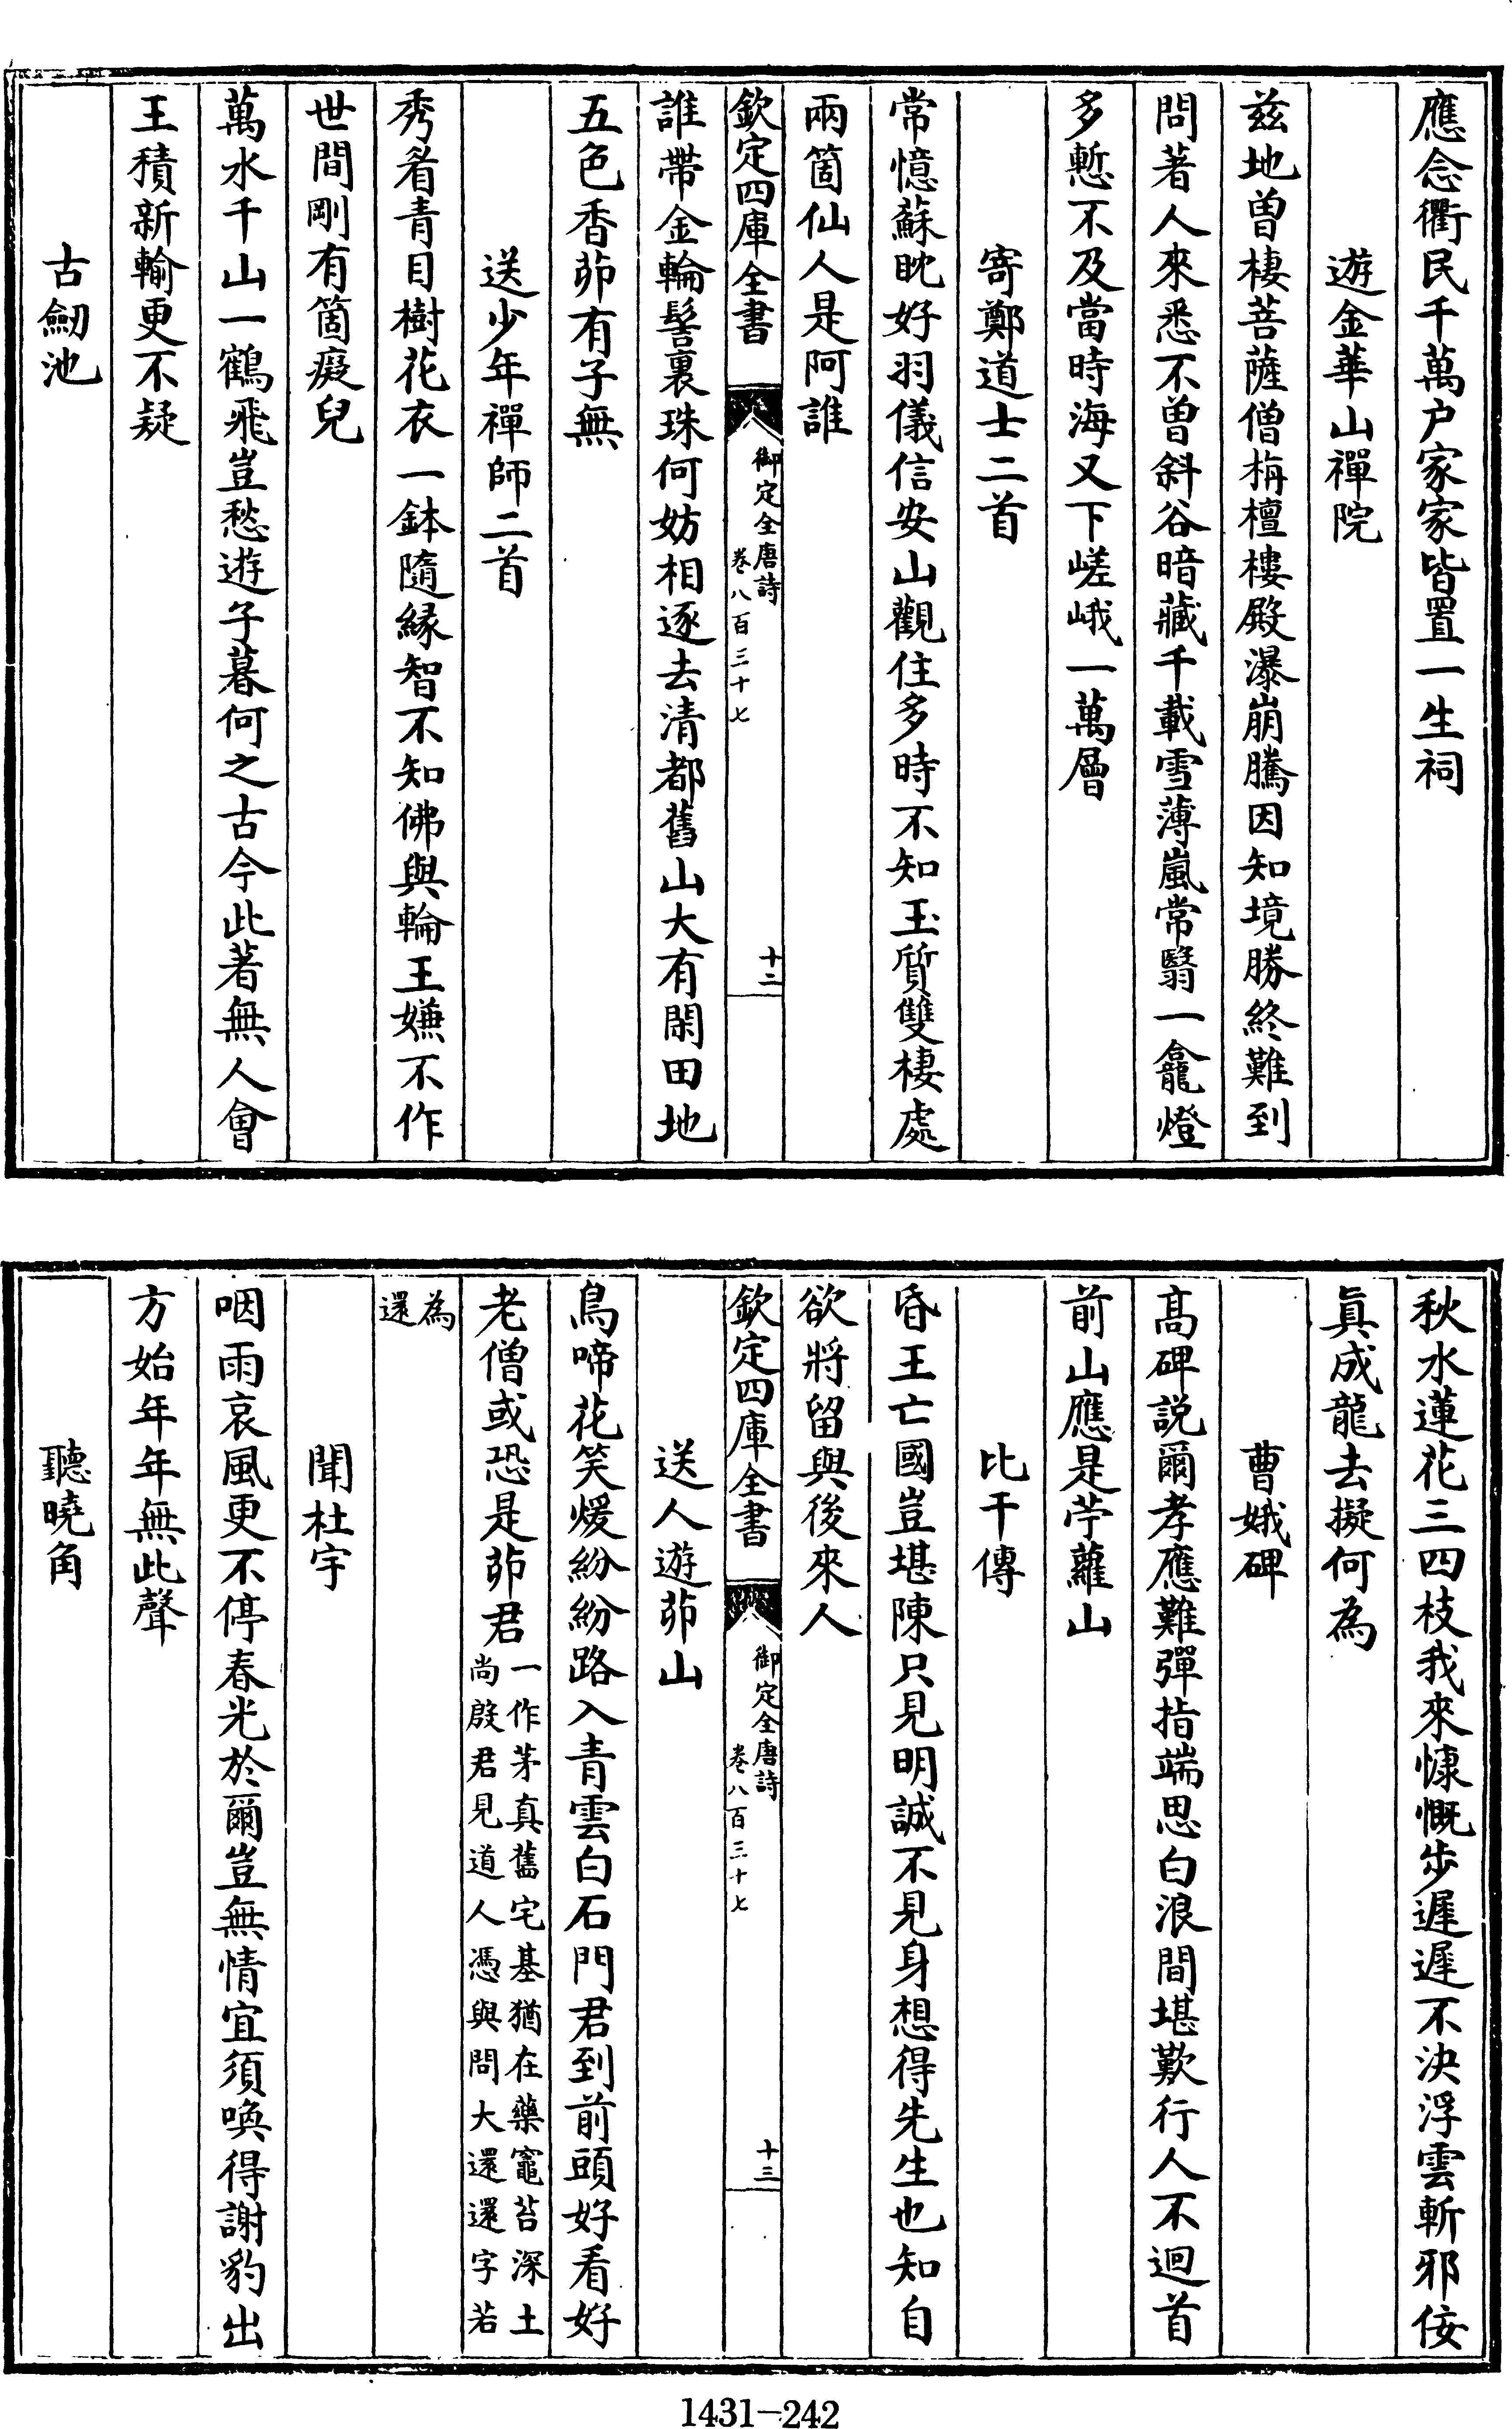 應念衢民千萬户家家皆置一生祠
遊金華山禪院
兹地曾棲菩薩僧栴檀樓殿瀑崩騰因知境勝終難到
問著人來悉不曾斜谷暗藏千載雪薄嵐常翳一龕燈
多慙不及當時海又下嵯峨一萬層
寄鄭道士二首
常憶蘇眈好羽儀信安山觀住多時不知玉質雙棲處
兩箇仙人是阿誰
欽定四庫全書
御定全唐詩
卷八百三十七
十二
誰帶金輪髻裏珠何妨相逐去清都舊山大有閑田地
五色香茆有子無
送少年禪師二首
秀眉青目樹花衣一鉢隨緣智不知佛與輪王嫌不作
世間剛有箇癡兒
萬水千山一鶴飛豈愁遊子暮何之古今此著無人會
王積新輸更不疑
古劒池
秋水蓮花三四枝我來慷慨步遲遲不決浮雲斬邪佞
眞成龍去擬何為
曹娥碑
髙碑説爾孝應難彈指端思白浪間堪歎行人不迴首
前山應是苧蘿山
比干傳
昏王亡國豈堪陳只見明誠不見身想得先生也知自
欲將留與後來人
欽定四庫全書
御定全唐詩
卷八百三十七
十三
送人遊茆山
鳥啼花笑煖紛紛路入青雲白石門君到前頭好看好
老僧或恐是茆君
一作茅真舊宅基猶在藥竈苔深土
尚殷君見道人憑與問大還還字若
為
還
聞杜宇
咽雨哀風更不停春光於爾豈無情宜須喚得謝豹出
方始年年無此聲
聽曉角
1431-242